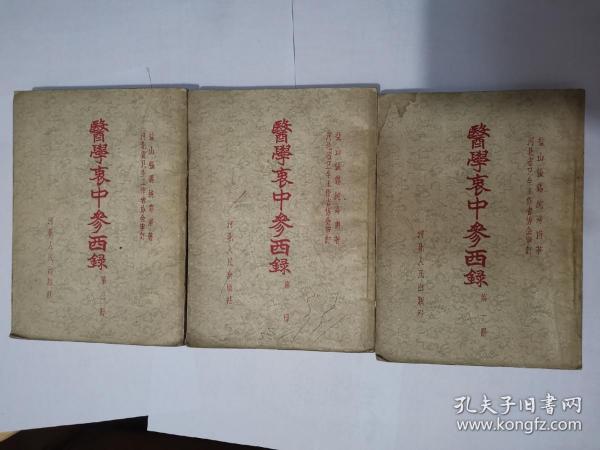 鹽山張錫純壽甫著
河北省卫生工作者協会審訂
醫學衷中參西錄
第一冊
河北人民出版社
鹽山張錫純壽甫著
河北省卫生工作者協会審訂
醫學衷中參西錄
第
冊
河北人民出版社
鹽山張錫純壽甫著
河北省卫生工作者協会審訂
醫學衷中參西錄
第
冊
河北人民出版社
孔夫子旧书网
www.kongfz.com